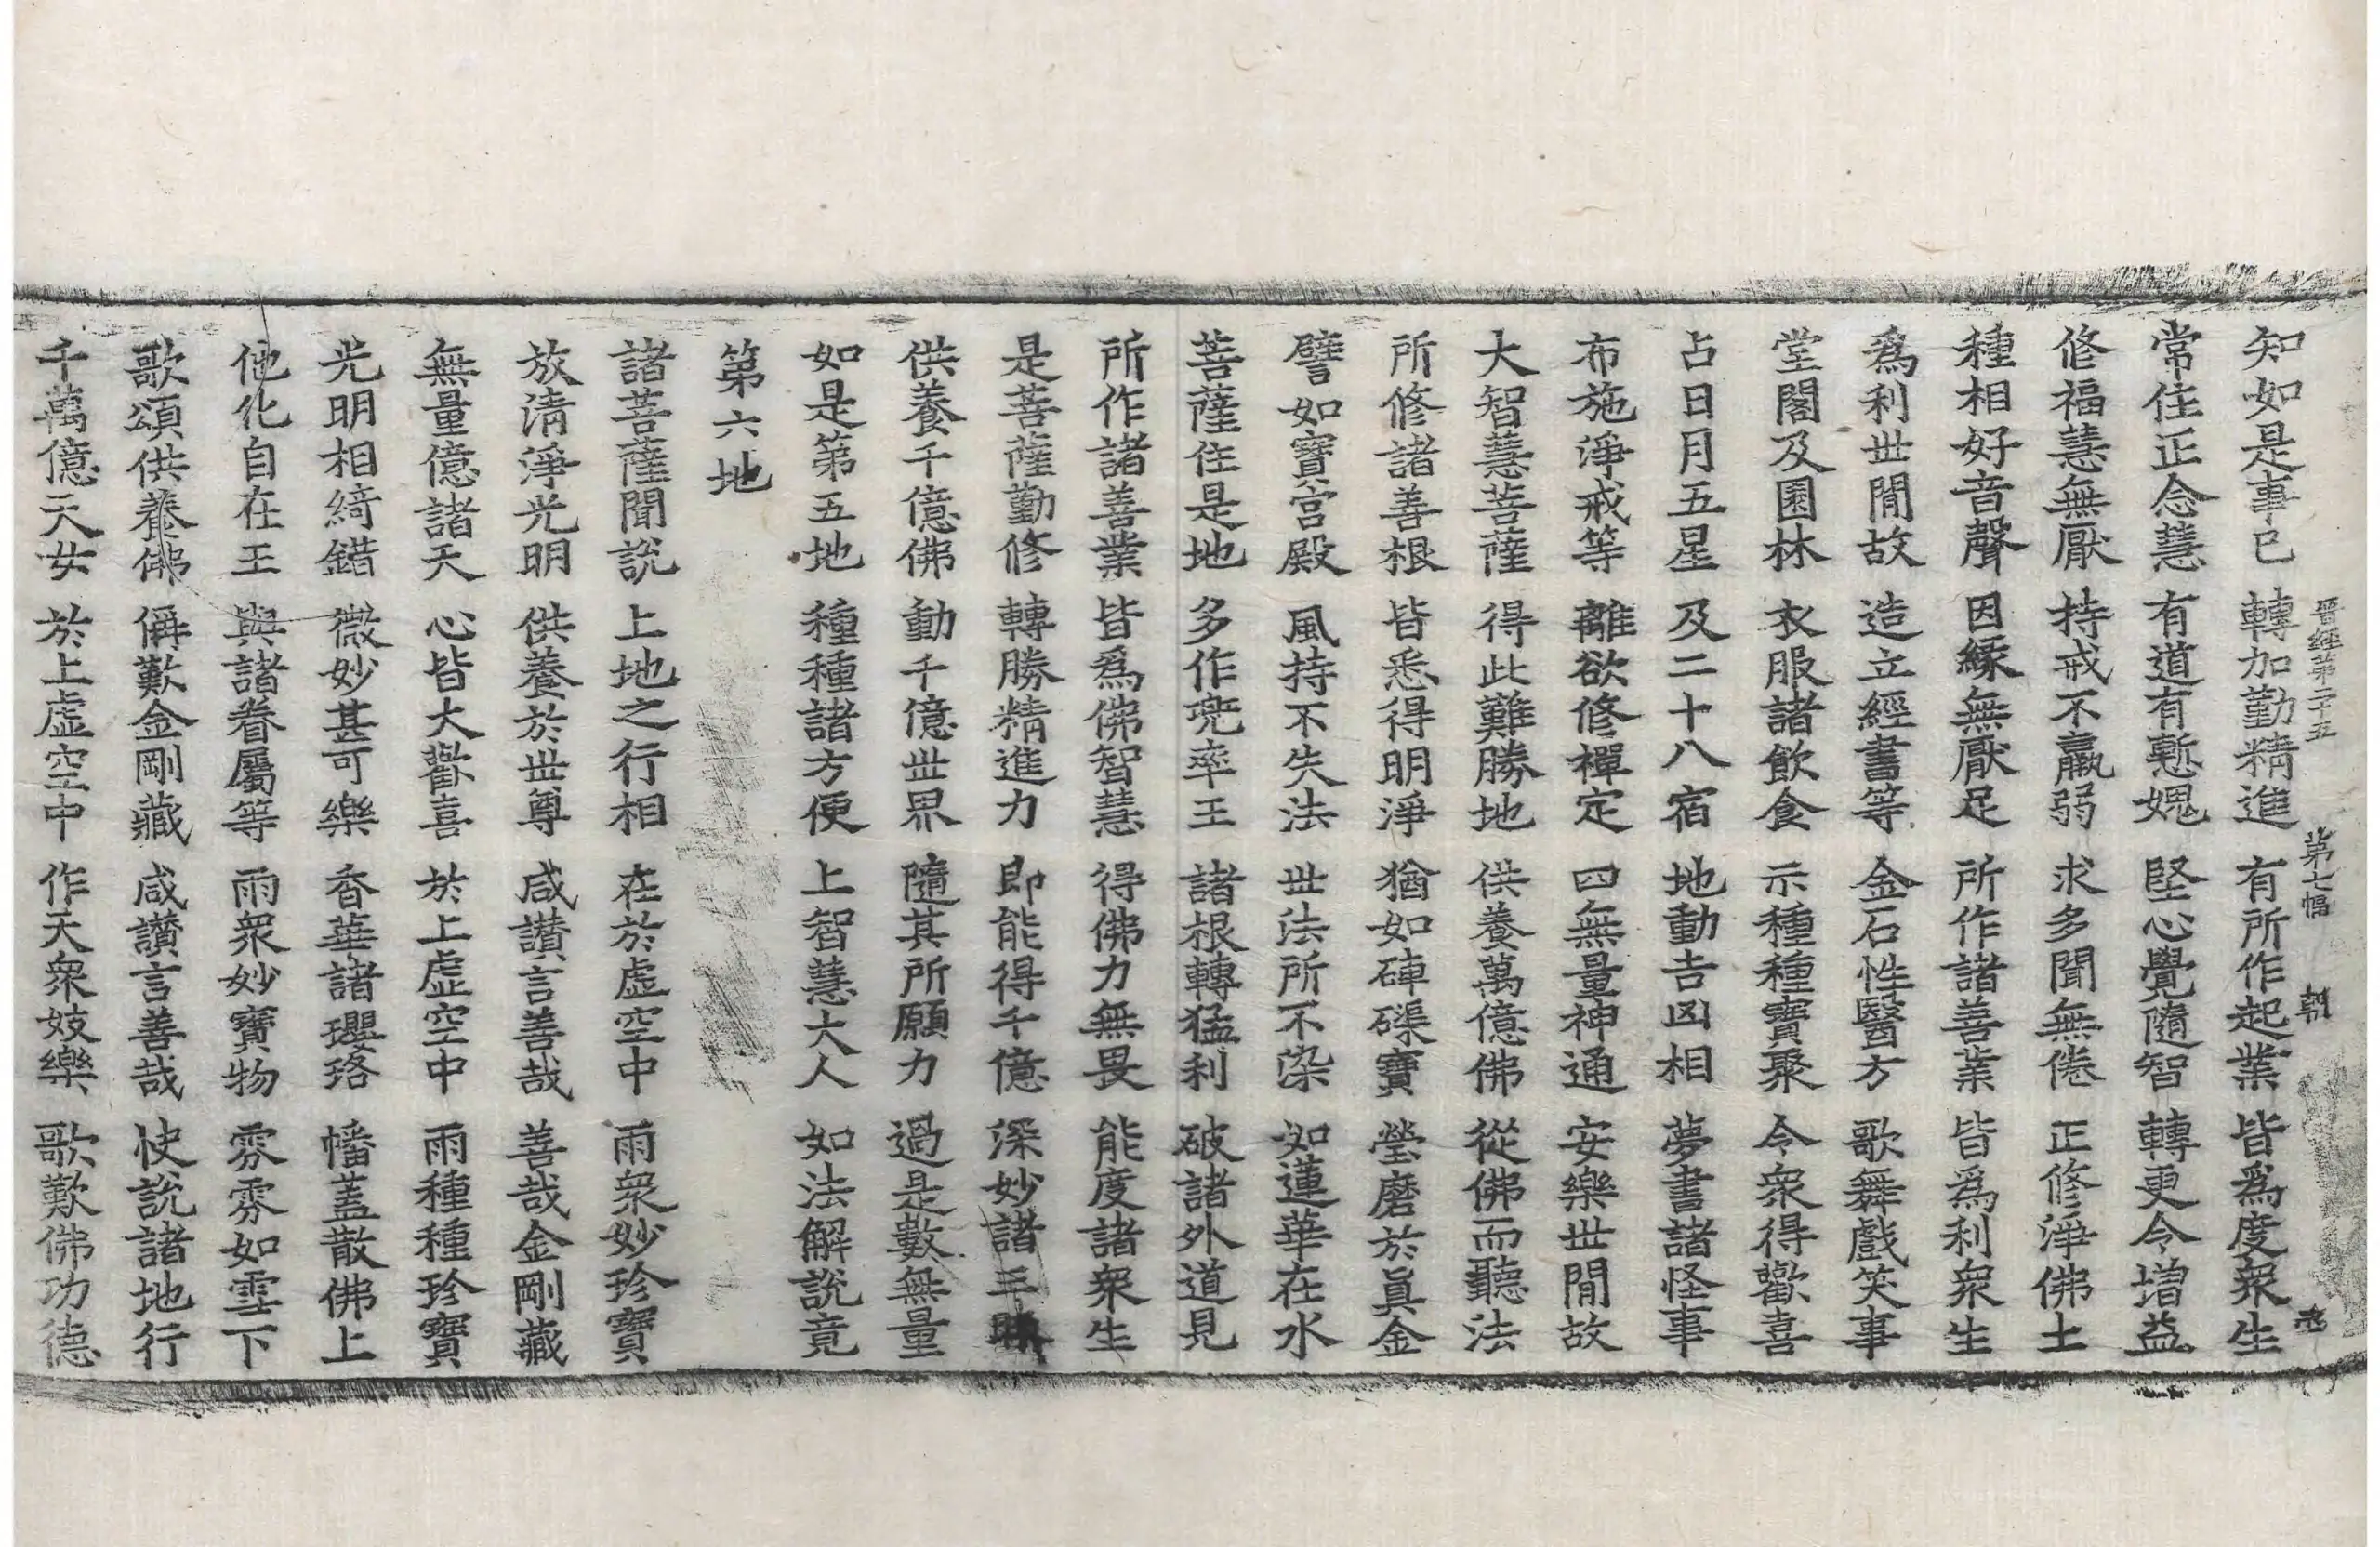 晉經第二十五 第七幅 朝
知如是事已 轉加勤精進 有所作起業 皆爲度衆生
常住正念慧 有道有慙媿 堅心覺隨智 轉更令增益
修福慧無厭 持戒不羸弱 求多聞無倦 正修淨佛土
種相好音聲 因緣無厭足 所作諸善業 皆爲利衆生
爲利世間故 造立經書等 金石性醫方 歌舞戲笑事
堂閣及園林 衣服諸飲食 示種種寶聚 令衆得歡喜
占日月五星 及二十八宿 地動吉凶相 夢書諸怪事
布施淨戒等 離欲修禪定 四無量神通 安樂世間故
大智慧菩薩 得此難勝地 供養萬億佛 從佛而聽法
所修諸善根 皆悉得明淨 猶如硨磲寶 瑩磨於眞金
譬如寶宮殿 風持不失法 世法所不染 如蓮華在水
菩薩住是地 多作兜率王 諸根轉猛利 破諸外道見
所作諸善業 皆爲佛智慧 得佛力無畏 能度諸衆生
是菩薩勤修 轉勝精進力 即能得千億 深妙諸三昧
供養千億佛 動千億世界 隨其所願力 過是數無量
如是第五地 種種諸方便 上智慧大人 如法解說竟
第六地
諸菩薩聞說 上地之行相 在於虛空中 雨衆妙珍寶
放清淨光明 供養於世尊 咸讃言善哉 善哉金剛藏
無量億諸天 心皆大歡喜 於上虛空中 雨種種珍寶
光明相綺錯 微妙甚可樂 香華諸瓔珞 幡蓋散佛上
他化自在王 與諸眷屬等 雨衆妙寶物 雰雰如雪下
歌頌供養佛 偁歎金剛藏 咸讃言善哉 快說諸地行
千萬億天女 於上虛空中 作天衆妓樂 歌歎佛功德